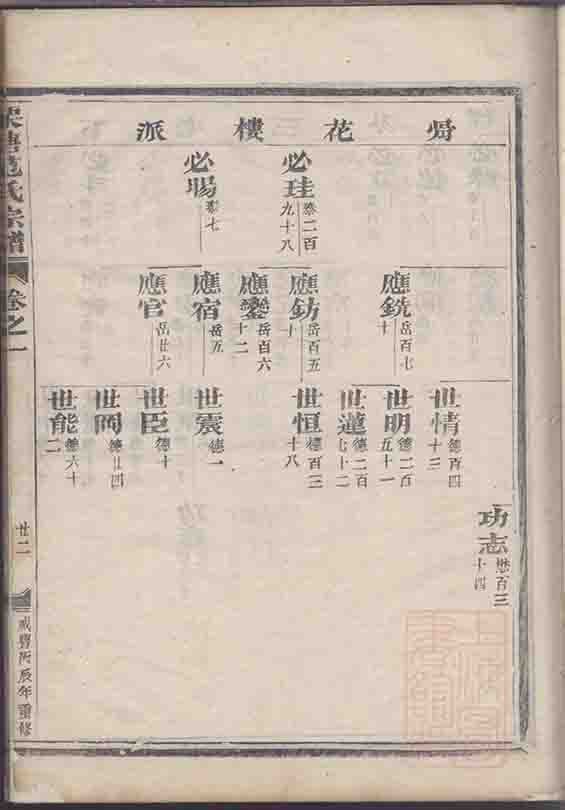 花樓派
必珪 泰二百九十八
必賜 泰七
應銑 岳百七十
應鈁 岳百五十
應鑾 岳百六十二
應宿 岳五
應官 岳廿六
世情 德百四十三
世明 德二百五十一
世蓮 德二百七十二
世恒 德百三十八
世震 德一
世臣 德十
世岡 德廿四
世能 德六十二
功志 懋百三十四
氏宗譜
卷之一
廿二
咸豐丙辰年重修